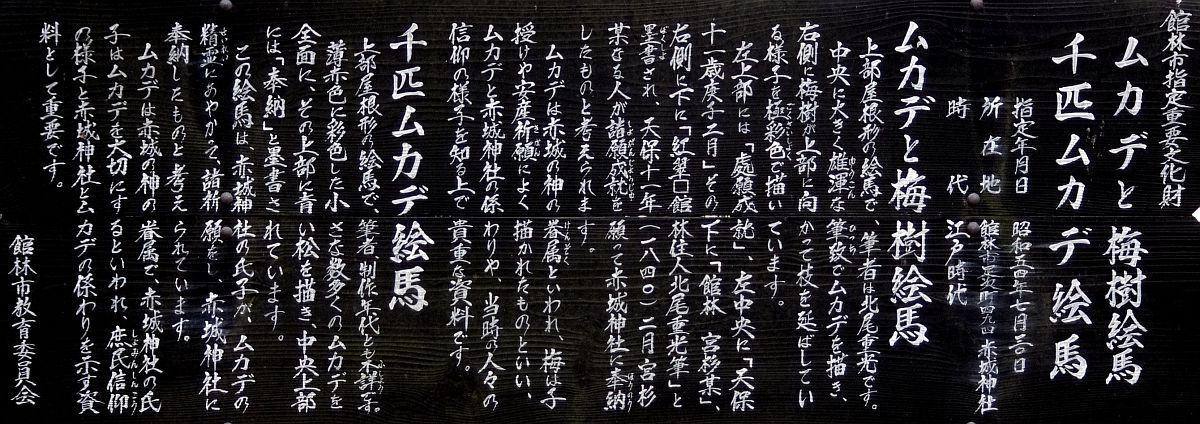 館林市指定重要文化財
ムカデと梅樹絵馬
千匹ムカデ絵馬
指定年月日 昭和五四年七月三〇日
所在地 館林市 赤城神社
時代 江戸時代
ムカデと梅樹絵馬
上部屋根形の絵馬で 筆者は北尾重光です。
中央に大きく雄渾な筆致でムカデを描き、
右側に梅樹が上部に向かって枝を延ばしてい
る様子を極彩色で描いています。
左上部には「處願成就」、左中央に「天保
十一歳庚子二月」その下に「館林 宮杉某」、
右側に下に「紅翠口館林住人北尾重光筆」と
墨書され、天保十一年(一八四〇)二月宮杉
某なる人が諸願成就を願って赤城神社へ奉納
したものと考えられます。
ムカデは赤城の神の眷属といわれ、梅は子
授けや安産祈願によく描かれたものといい、
ムカデと赤城神社の係わりや、当時の人々の
信仰の様子を知る上で貴重な資料です。
千匹ムカデ絵馬
上部屋根形の絵馬で、筆者、制作年代とも不詳です。
薄赤色に彩色した小さな数多くのムカデを
全面に、その上部に青い松を描き、中央上部
には「奉納」と墨書されています。
この絵馬は、赤城神社の氏子が、ムカデの
精霊にあやかって、諸祈願をし、赤城神社に
奉納したものと考えられています。
ムカデは赤城の神の眷属で、赤城神社の氏
子はムカデを大切にするといわれ、庶民信仰
の様子と赤城神社とムカデの係わりを示す資
料として重要です。
館林市教育委員会